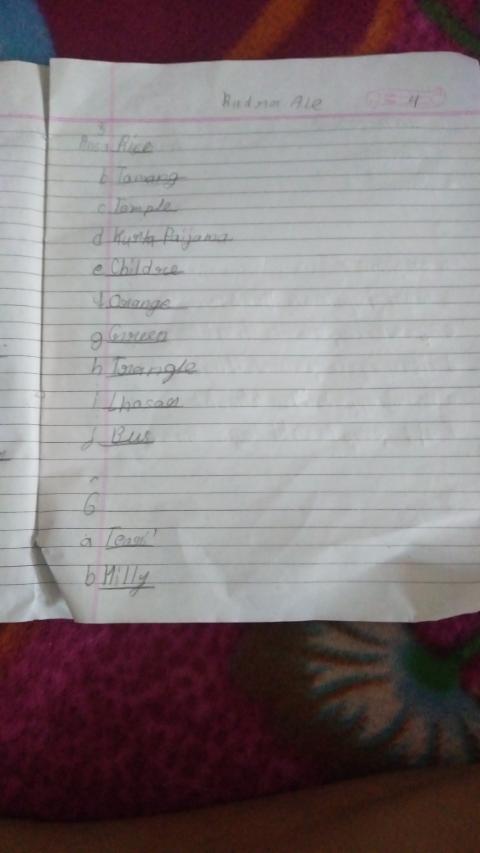 Rudra Ale 4
3
Ans a Rice
b Tamang
c Temple
d Kurta Paijama
e Childrce
f Orange
g Green
h Triangle
i Lhosar
j Bus
6
a
b Hilly